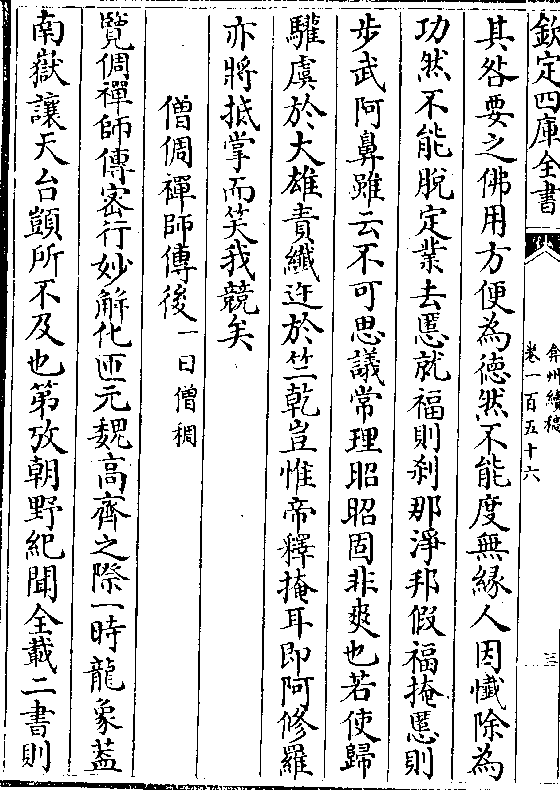 欽定四庫全書
弇州續稿
卷一百五十六
三
其咎要之佛用方便為徳然不能度無縁人因懴除為
功然不能脫定業去慝就福則刹那淨邦假福掩慝則
步武阿鼻雖云不可思議常理昭昭固非爽也若使歸
騅虞於大雄責纖迕於竺乾豈惟帝釋掩耳即阿修羅
亦將抵掌而笑我競矣
僧倜禪師傳後一曰僧稠
覽倜禪師傳密行妙解化匝元魏高齊之際一時龍象葢
南嶽讓天台顗所不及也第攷朝野紀聞全載二書則